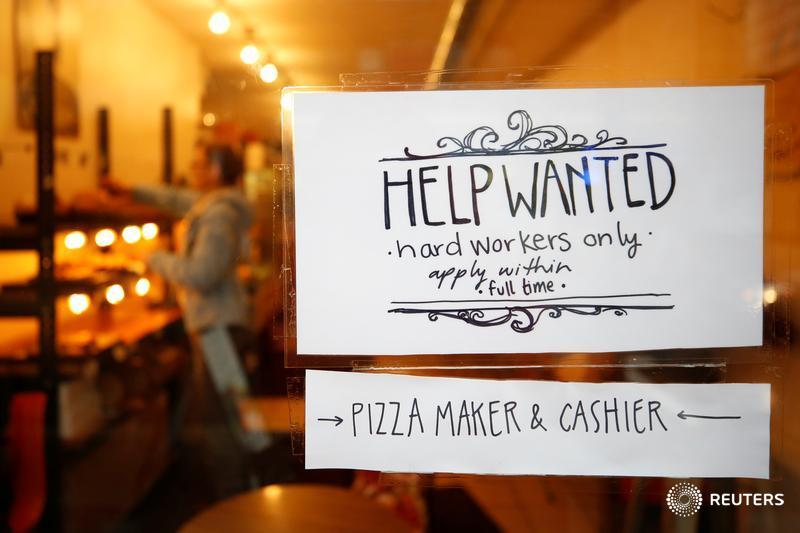 HELP WANTED
·hard workers only·
apply within
·full time·
→PIZZA MAKER & CASHIER←
REUTERS